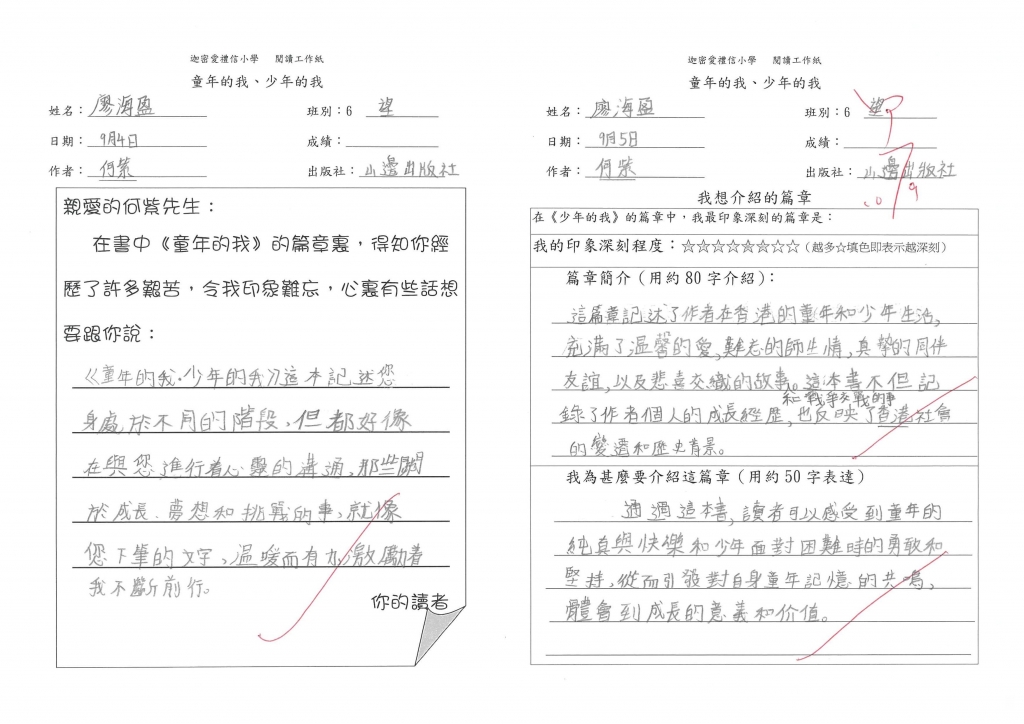 迦密愛禮信小學 閱讀工作紙
童年的我、少年的我
姓名：廖海盈 班別：6 望
日期：9月4日 成績：
作者：何紫 出版社：山邊出版社
親愛的何紫先生：
在書中《童年的我》的篇章裏，得知你經
歷了許多艱苦，令我印象難忘，心裏有些話想
要跟你說：
《童年的我·少年的我》這本記述您
身處於不同的階段，但都好像
在與您進行着心靈的溝通，那些關
於成長、夢想和挑戰的事，就像
您下筆的文字，溫暖而有力，激勵着
我不斷前行。
你的讀者
迦密愛禮信小學 閱讀工作紙
童年的我、少年的我
姓名：廖海盈 班別：6 望
日期：9月5日 成績：
作者：何紫 出版社：山邊出版社
我想介紹的篇章
在《少年的我》的篇章中，我最印象深刻的篇章是：
我的印象深刻程度：☆☆☆☆☆☆☆☆（越多☆填色即表示越深刻）
篇章簡介（用約80字介紹）：
這篇章記述了作者在香港的童年和少年生活，
充滿了溫馨的愛，難忘的師生情，真摯的同伴
友誼，以及悲喜交織的故事。這本書不但記
錄了作者個人的成長經歷，也反映了香港社會
的變遷和歷史背景。
我為甚麼要介紹這篇章（用約50字表達）
通過這本書，讀者可以感受到童年的
純真與快樂和少年面對困難時的勇敢和
堅持，從而引發對自身童年記憶的共鳴，
體會到成長的意義和价值。